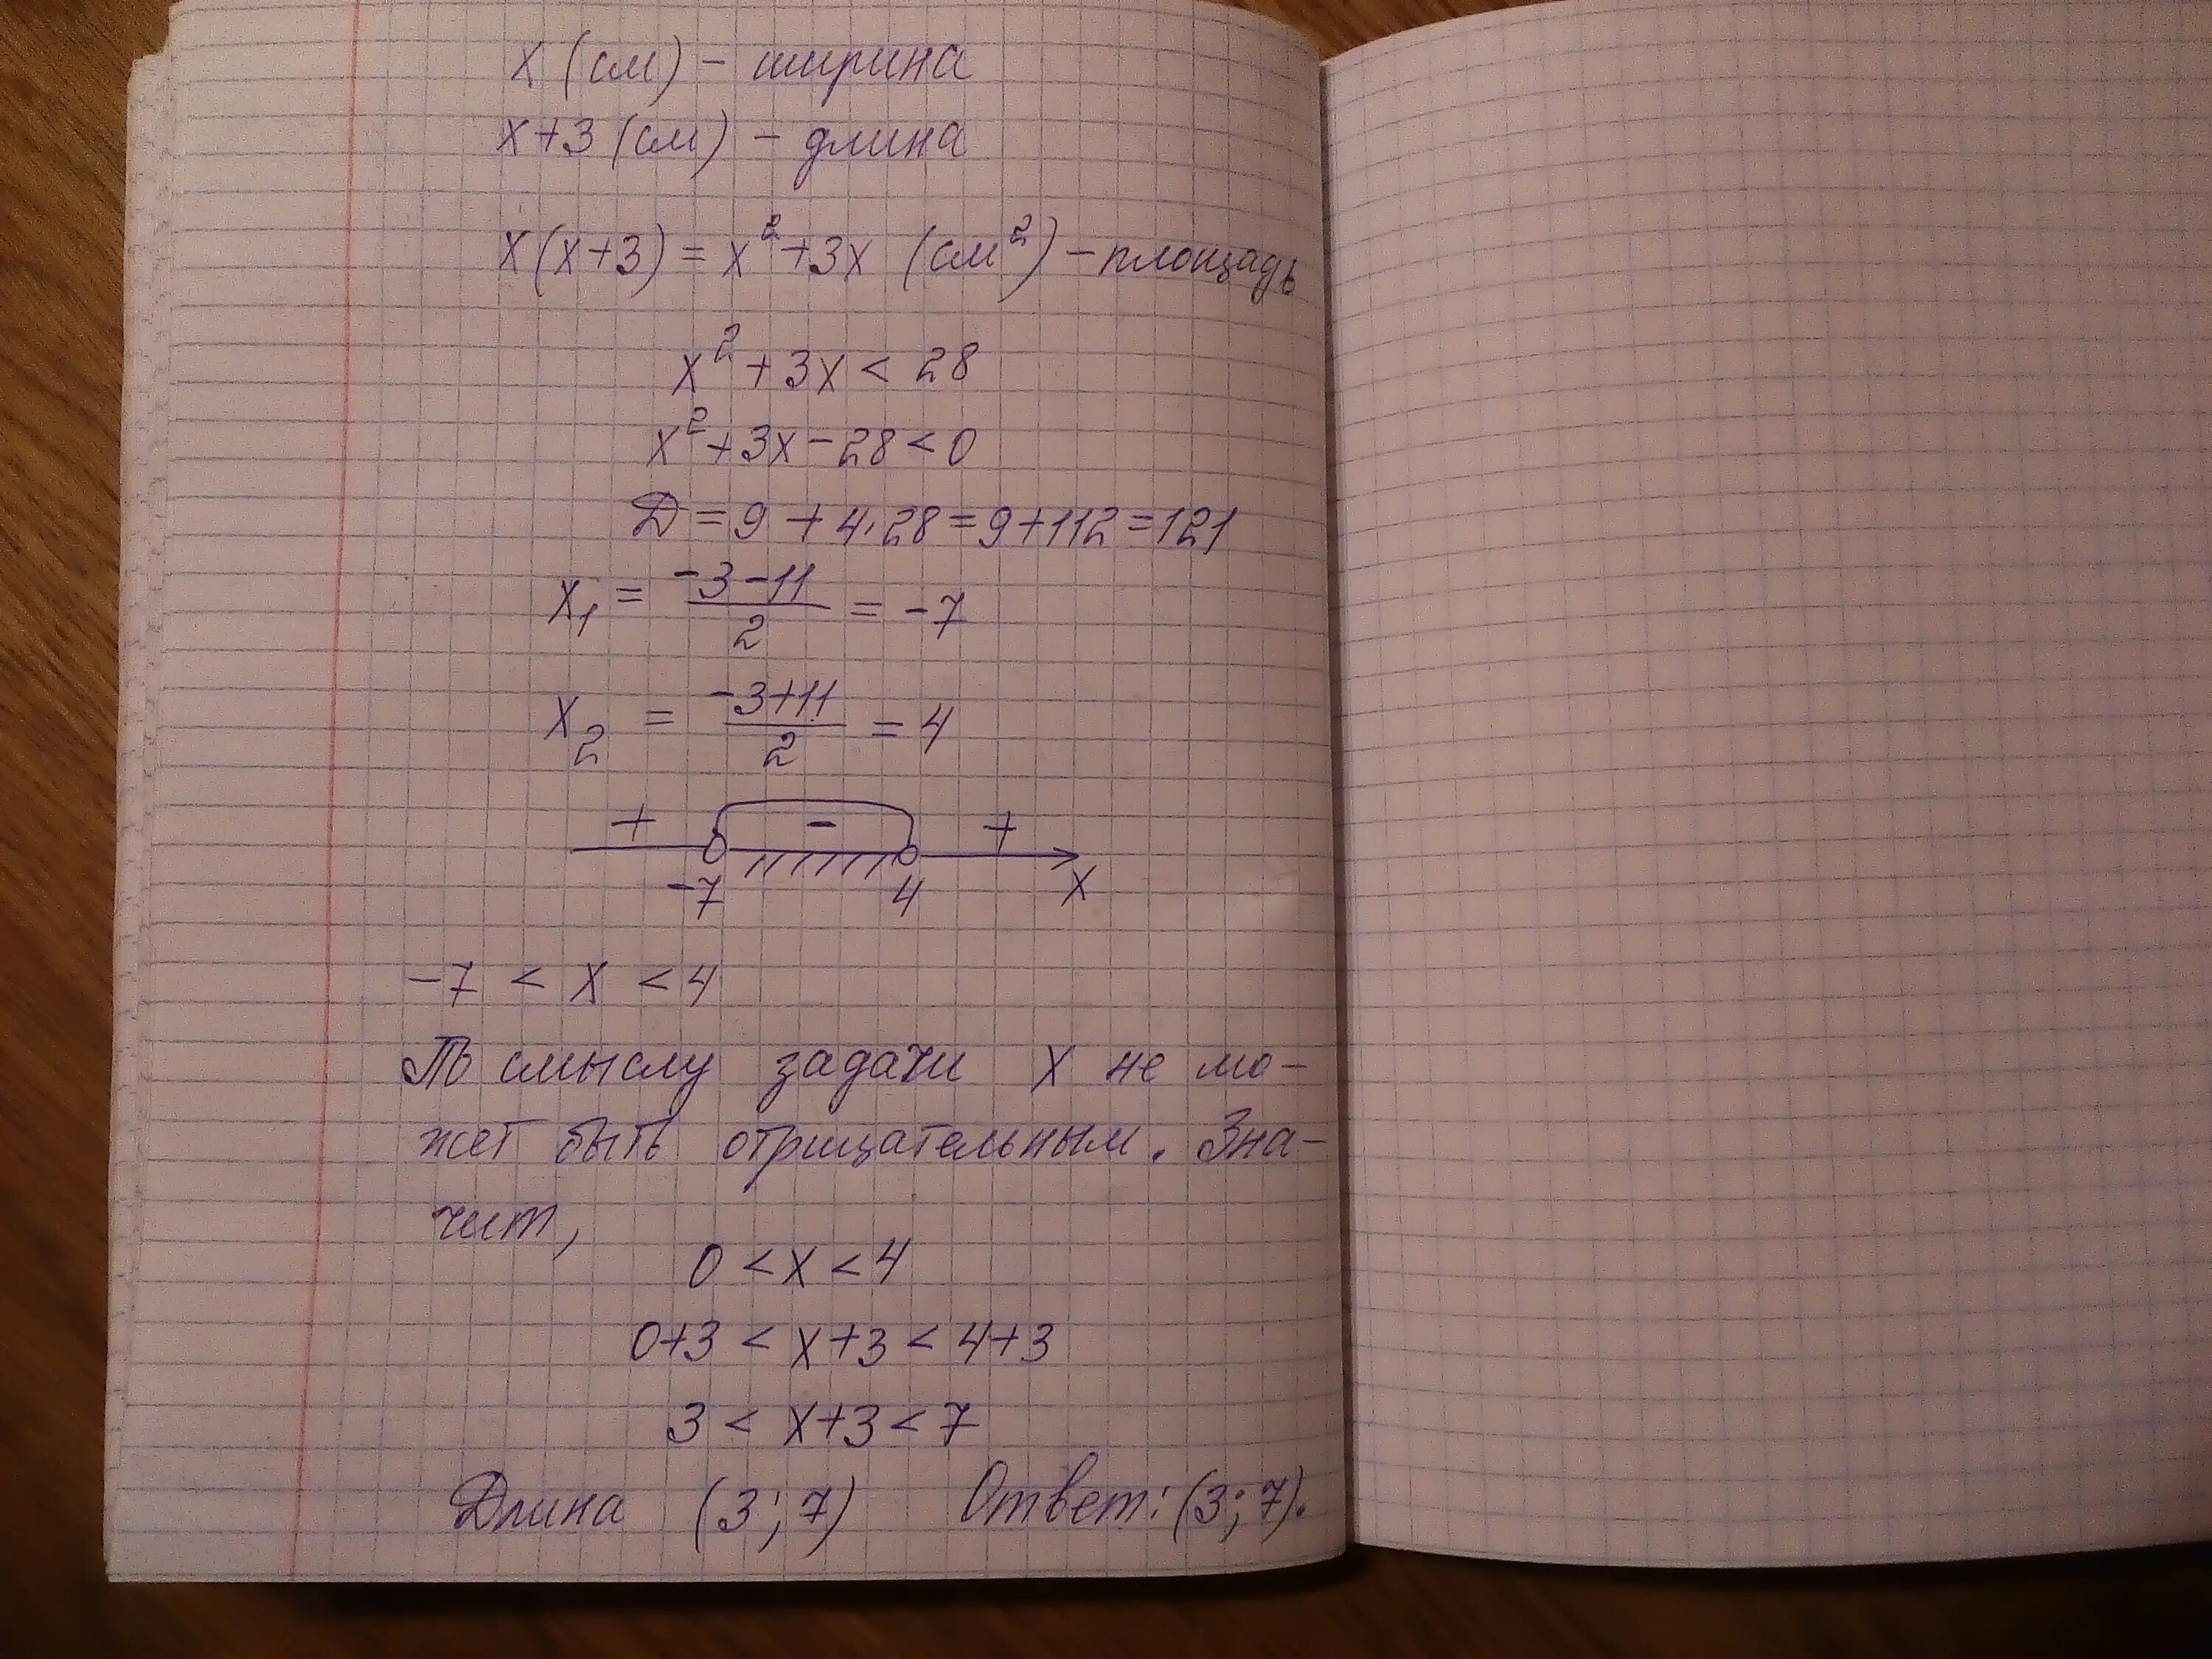 x (см) – ширина
x+3 (см) – длина
x(x+3) = x²+3x (см²) – площадь
x²+3x < 28
x²+3x−28<0
Д = 9 + 4·28 = 9+112 = 121
x₁ = (−3−11)/2 = −7
x₂ = (−3+11)/2 = 4
+ − +
−7 4 x
−7 < x < 4
По смыслу задачи x не мо-
жет быть отрицательным. Зна-
чит,
0 < x < 4
0+3 < x+3 < 4+3
3 < x+3 < 7
Длина (3; 7) Ответ: (3; 7).